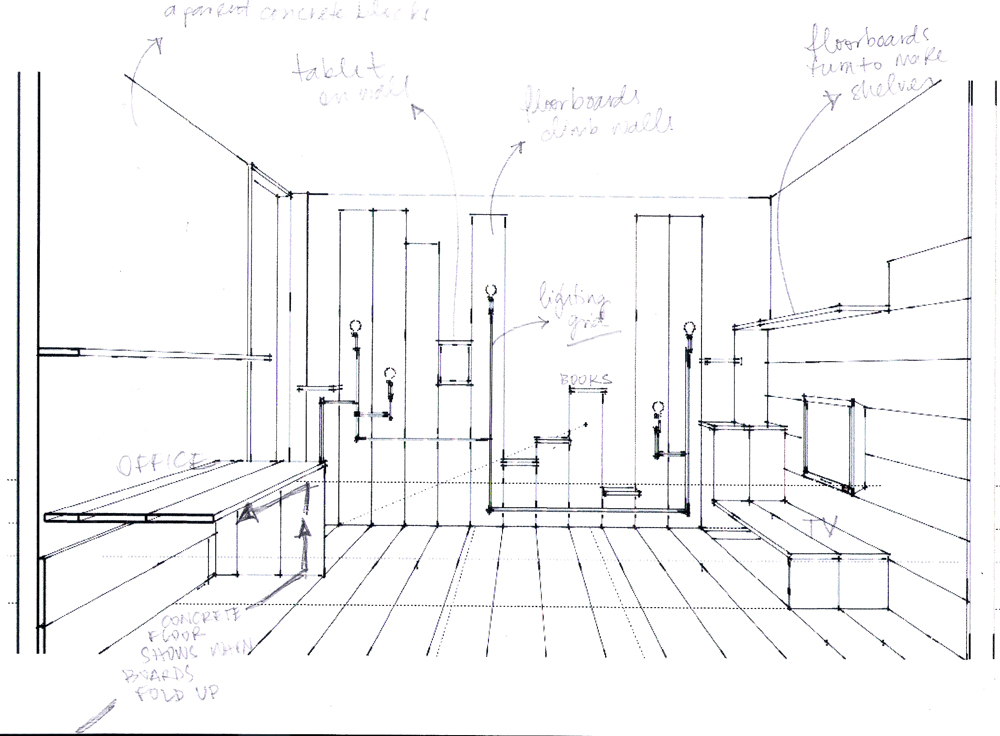 apparent concrete blocks
tablet
on wall
floorboards
climb walls
floorboards
turn to make
shelves
lighting
grid
BOOKS
OFFICE
TV
CONCRETE
FLOOR
SHOWS WHEN
BOARDS
FOLD UP